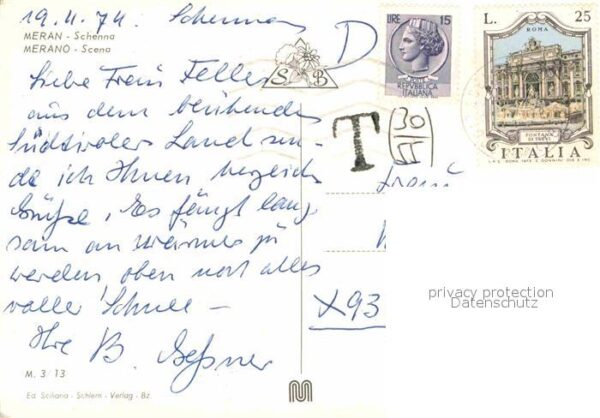 19.4.74 Schennna
MERAN - Schenna
MERANO - Scena
Liebe Frau Feller
aus dem blühenden
Südtiroler Land sen-
de ich Ihnen herzliche
Grüße, Es fängt lang-
sam an wärmer zu
werden, oben noch alles
voller Schnee –
Ihre B.
M. 3 13
Ed. Sciliana - Schlern - Verlag - Bz.
S B
D
LIRE 15
REPVBBLICA
ITALIANA
L. 25
ROMA
FONTANA
DI TREVI
ITALIA
T
30
Frau
X93
privacy protection
Datenschutz